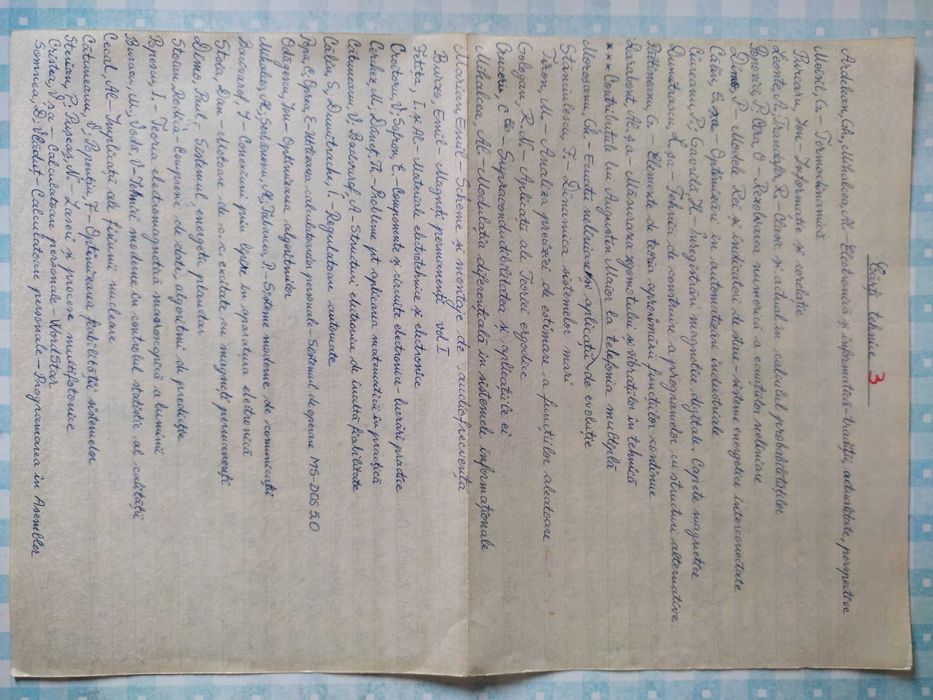 Cărți tehnice 3
Ardelean, Gh, Mihalca, Al. - Electronică și informatică - tradiții, actualitate, perspective
Moisil, G. - Termodinamică
Purcaru, Ion - Informație și corelație
Leonte, A, Trandafir, R - Clasic și actual în calculul probabilităților
Popovici, P, Cira, O - Rezolvarea numerică a ecuațiilor neliniare
Dimo, P - Modele Rei și indicatori de stare - sisteme energetice interconectate
Călin, S, șa - Optimizări în automatizări industriale
Ciureanu, P, Gavrila, H. - Înregistrări magnetice digitale. Capete magnetice
Dumitrașcu, L. șa - Tehnici de construire a programelor cu structuri alternative.
Bătineanu, G. - Elemente de teoria aproximării funcțiilor continue
Darabont, Al. ș.a - Măsurarea zgomotului și vibrațiilor în tehnică
*** Contribuțiile lui Augustin Maior la telefonia multiplă
Moroșanu, Gh - Ecuații neliniare și aplicații de evoluție
Stănciulescu, F. - Dinamica sistemelor mari
Tiron, M - Analiza preciziei de estimare a funcțiilor aleatoare
Gologan, R.N - Aplicații ale Teoriei ergodice
C-tin - Supraconductibilitatea și aplicațiile ei
Mihalcea, Al - Modulația diferențială în sistemele informaționale
Marian, Emil - Scheme și montaje de audiofrecvență
Burzo, Emil - Magneți permanenți vol. I
Fetita, I. și Al. - Materiale electrotehnice și electronice
Croitoru, V, Sofron, E. - Componente și circuite electronice - lucrări practice
Cerchez, M, Daneț, Th - Probleme pt aplicarea matematicii în practică
Cătuneanu, V, Bacivarof, A. Structuri electronice de înaltă fiabilitate
Călin, S, Dumitrache, I - Regulatoare automate
Popa, C, Oprea, E - Utilizarea calculatorului personal - Sistemul de operare MS-DOS 5.0
Odăgescu, Ion - Optimizarea algoritmilor
Nicolau, E, Solomon, A, Tălănescu, P - Sisteme moderne de comunicații
Bacivarof, I - Conexiuni prin lipire în aparatura electronică
Stoia, Dan - Motoare de c.c. excitate cu magneți permanenți
Dimo, Paul - Sistemul energetic planetar
Stoian, Rodica - Compresie de date, algoritmi de predicție
Popescu, I. - Teoria electromagnetică macroscopică a luminii
Baron, M, Voda, V - Tehnici moderne în controlul statistic al calității
Ceal, Al - Implicații ale fisiunii nucleare
Cătuneanu, V, Popențiu, F - Optimizarea fiabilității sistemelor
Sterian, P, Pușcaș, N - Laseri și procese multifotonice
Cristea, V, ș.a - Calculatoare personale - WordStar
Somnea, D, Vlăduț - Calculatoare personale - Programarea în Asembler